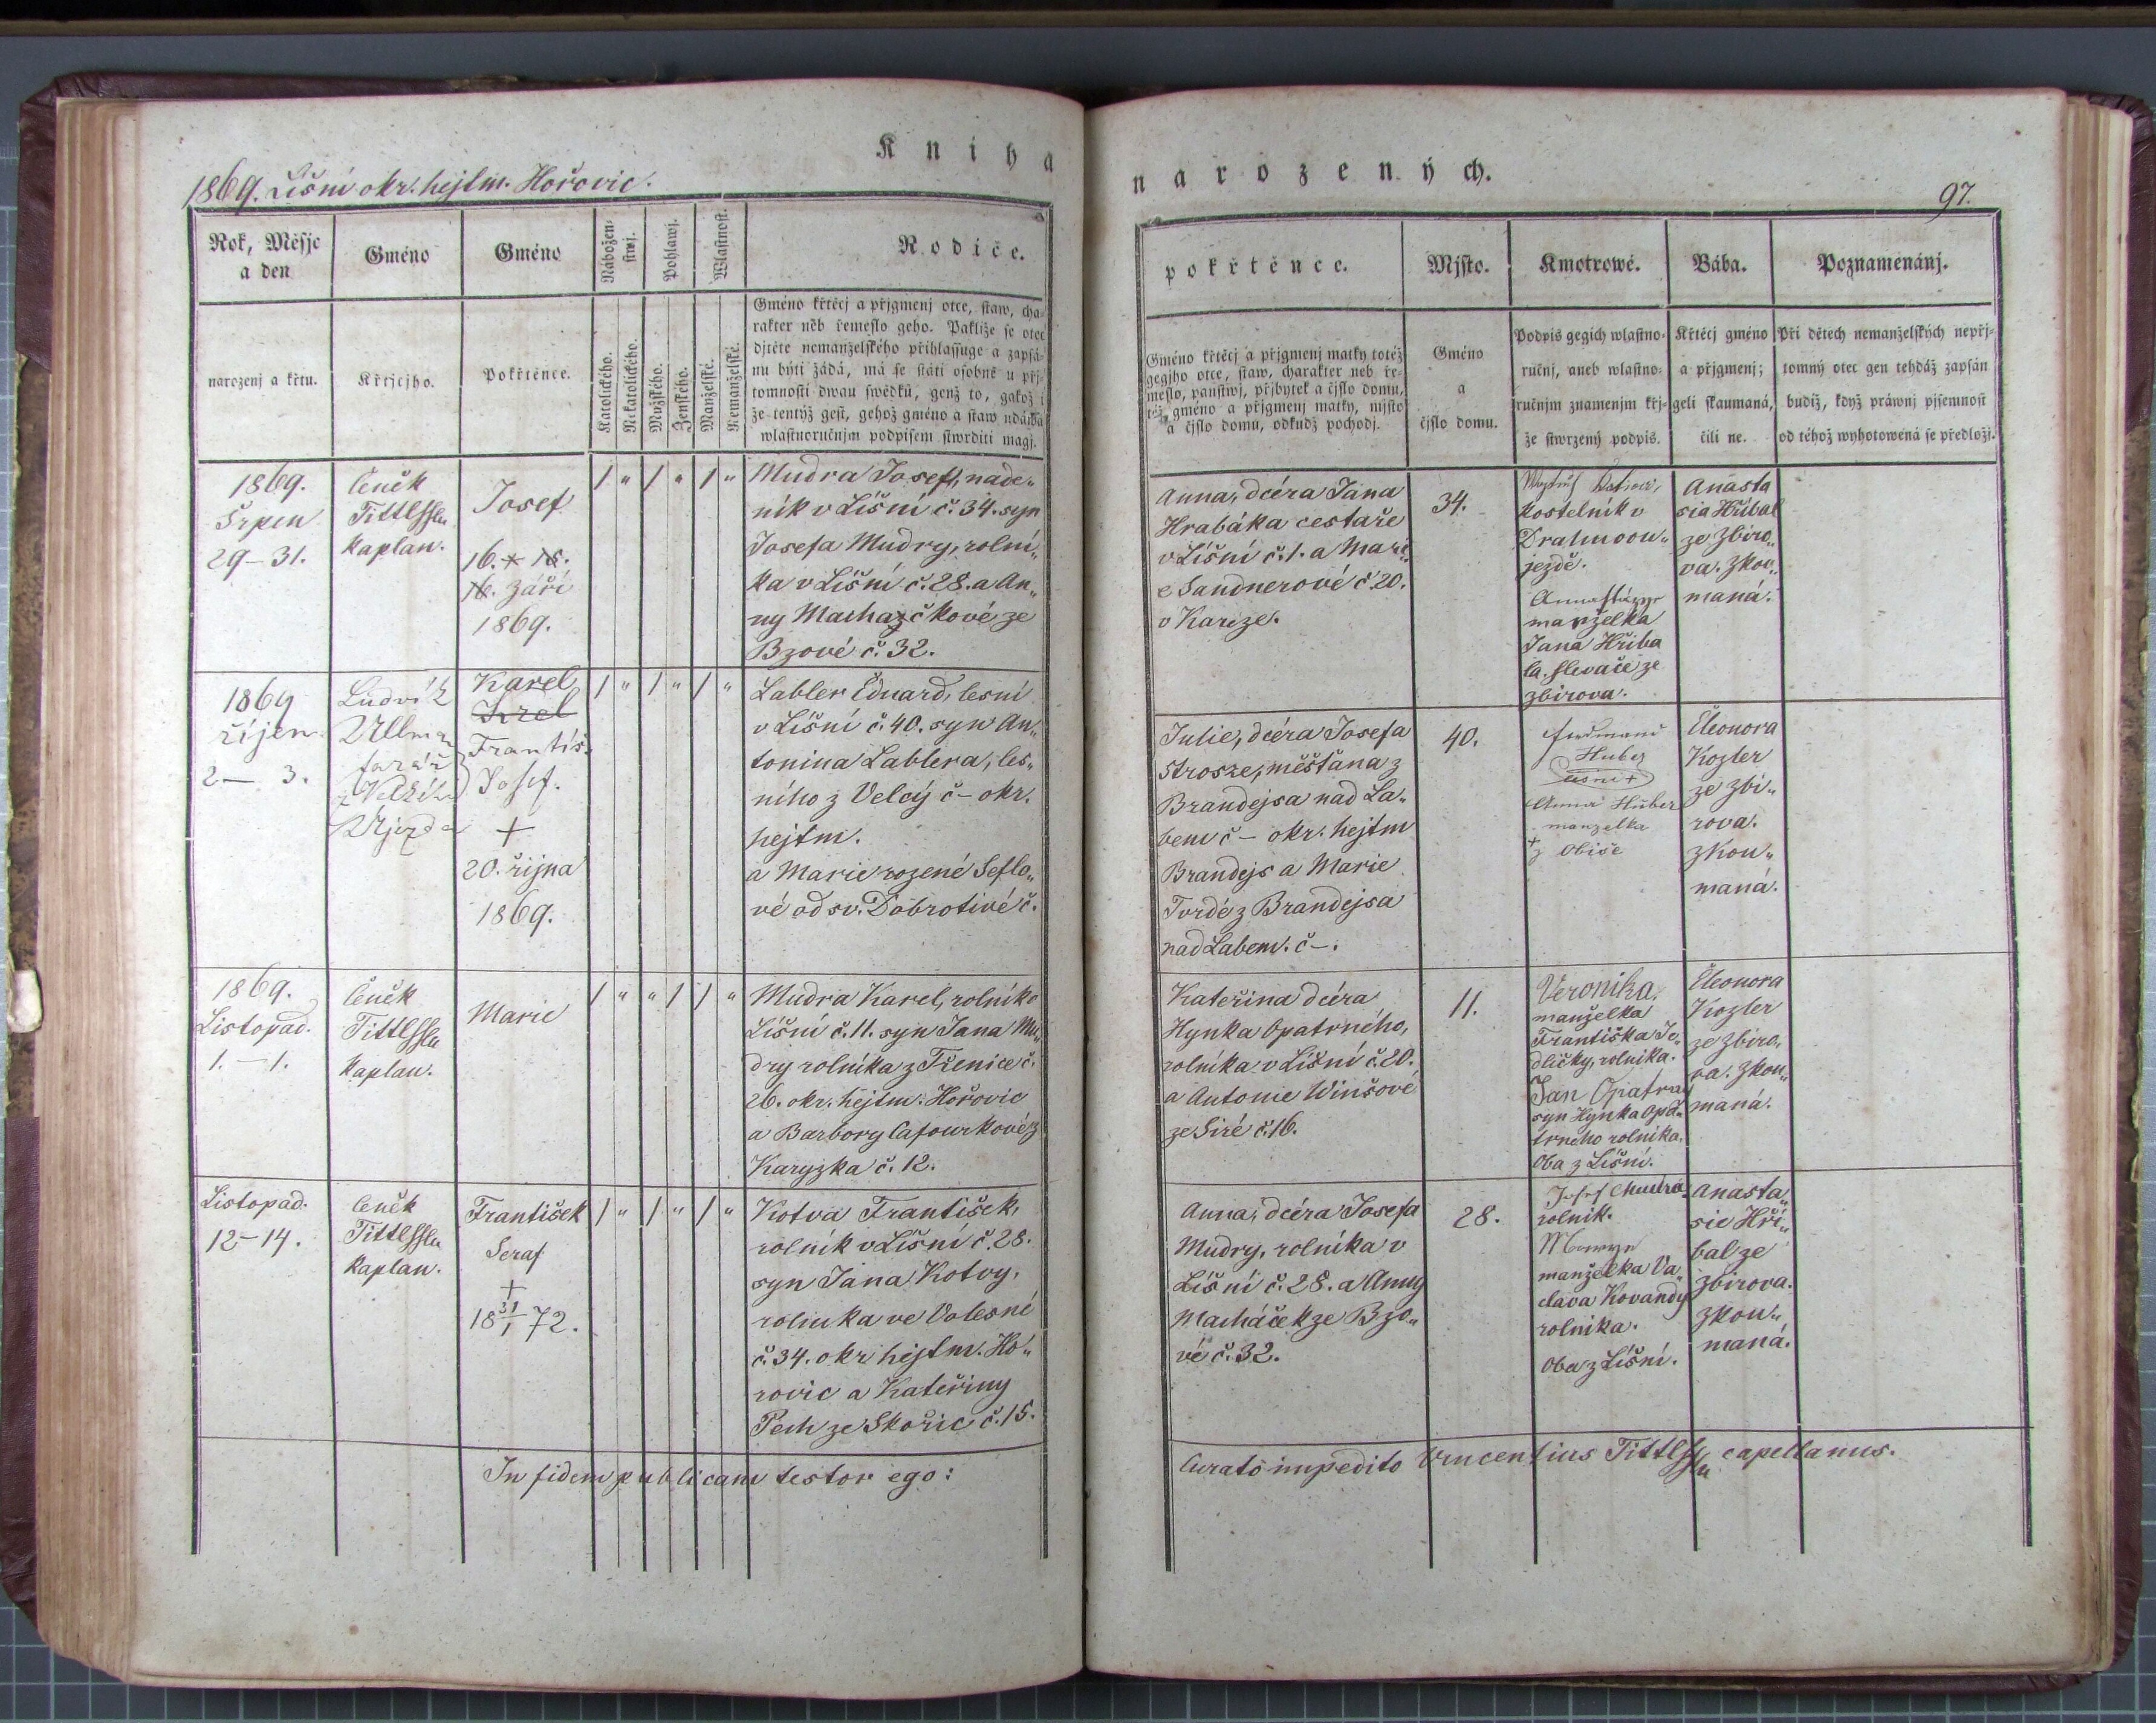 Kniha
1869. Líšní okr. hejtm. Hořovic.
Rok, Měsýc
a den
Gméno
Gméno
Nábožen-
stwj.
Pohlawj.
Wlastnost.
Rodiče.
narozenj a křtu.
Křtjcýho.
Pokřtěnce.
Katolického.
Nekatolického.
Mužského.
Ženského.
Manželské.
Nemanželské.
Gméno křtěcj a přjgmenj otce, staw, cha-
rakter neb řemeslo geho. Pakliže se otec
djtěte nemanželského přihlassuge a zapsá-
nu býti žádá, má se státi osobně u přj-
tomnosti dwau swědků, genž to, gakož i
že tentýž gest, gehož gméno a staw udáwá
wlastnoručnjm podpisem stwrditi magj.
1869.
Srpen
29-31.
Čeněk
Kaplan.
Josef
16.
Září
1869.
/ " / " / "
Mudra Josef, nade„
ník v Líšní č. 34. syn
Josefa Mudry, rolní„
ka v Líšní č. 28. a An„
ny Machazčkové ze
Bzové č. 32.
1869
říjen
2— 3.
Ludvík
Ullman
farář
Újezda
Karel
Františ.
Josef.
+
20. října
1869.
/ " / " / "
Labler Eduard, lesní
v Líšní č. 40. syn An„
tonina Lablera, les„
ního z Velcý č – okr.
hejtm.
a Marie rozené Seflo„
vé od sv. Dobrotivé č.
1869.
Listopad.
1. – 1.
Čeněk
Kaplan.
Marie
/ " " / / "
Mudra Karel, rolník v
Líšní č. 11. syn Jana Mu„
dry rolníka z Třenice č.
26. okr. hejtm. Hořovic
a Barbory Cafourkové z
Karyzka č. 12.
Listopad.
12-14.
Čeněk
Kaplan.
František
Seraf
+
18 31/1 72.
/ " / " / "
Kotva František,
rolník v Líšní č. 28.
syn Jana Kotvy,
rolnika ve Volesné
č. 34. okr hejtm. Ho„
rovic a Kateřiny
Pech ze Skořic č. 15.
In fidem publicam testor ego:
narozených.
97.
pokřtěnce.
Mjsto.
Kmotrowé.
Bába.
Poznamenánj.
Gméno křtěcj a přjgmenj matky totéž
gegjho otce, staw, charakter neb ře-
meslo, panstwj, přjbytek a čjslo domu,
též gméno a přjgmenj matky, mjsto
a čjslo domu, odkudž pocházj.
Gméno
a
čjslo domu.
Podpis gegich wlastno-
ručnj, aneb wlastno-
ručnjm znamenjm křj-
že stwrzený podpis.
Křtěcj gméno
a přjgmenj;
geli skaumaná,
čili ne.
Při dětech nemanželských nepřj-
tomný otec gen tehdáž zapsán
budiž, když práwnj pjsemnost
od téhož wyhotowená se předložj.
Anna, dcéra Jana
Hrabáka cestaře
v Líšní č. 1. a Mari
e Sandnerové č 20.
v Karize.
34.
kostelník v
jezdě.
manželka
Jana Hřiba
la. slevače ze
zbirova.
Anasta
sia Hřibal
ze Zbiro„
va. zkou„
maná.
Julie, dcéra Josefa
Strosze, měšťana z
Brandejsa nad La„
bem č – okr. hejtm
Brandejs a Marie
Tvrdé z Brandejsa
nad Labem. č –.
40.
Huber
Anna Huber
manzelka
Eleonora
Kozler
ze Zbi„
rova.
zkou„
maná.
Kateřina dcéra
Hynka Opatrného,
rolníka v Líšní č. 20.
a Antonie Winšové
ze Siré č. 16.
11.
Veronika,
manželka
Františka Je„
dličky, rolníka.
Jan Opatrný
syn Hynka Opa„
trného rolníka.
Oba z Líšní.
Eleonora
Kozler
ze Zbiro„
va. zkou„
maná.
Anna, dcéra Josefa
Mudry, rolníka v
Líšní č. 28. a Anny
Macháček ze Bzo„
vé č. 32.
28.
Josef Mudra
rolník.
manželka Va„
clava Kovandy
rolníka.
Oba z Líšní.
Anasta„
sie Hři„
bal ze
Zbirova.
zkou„
maná.
Curato impedito Vincentius capellanus.